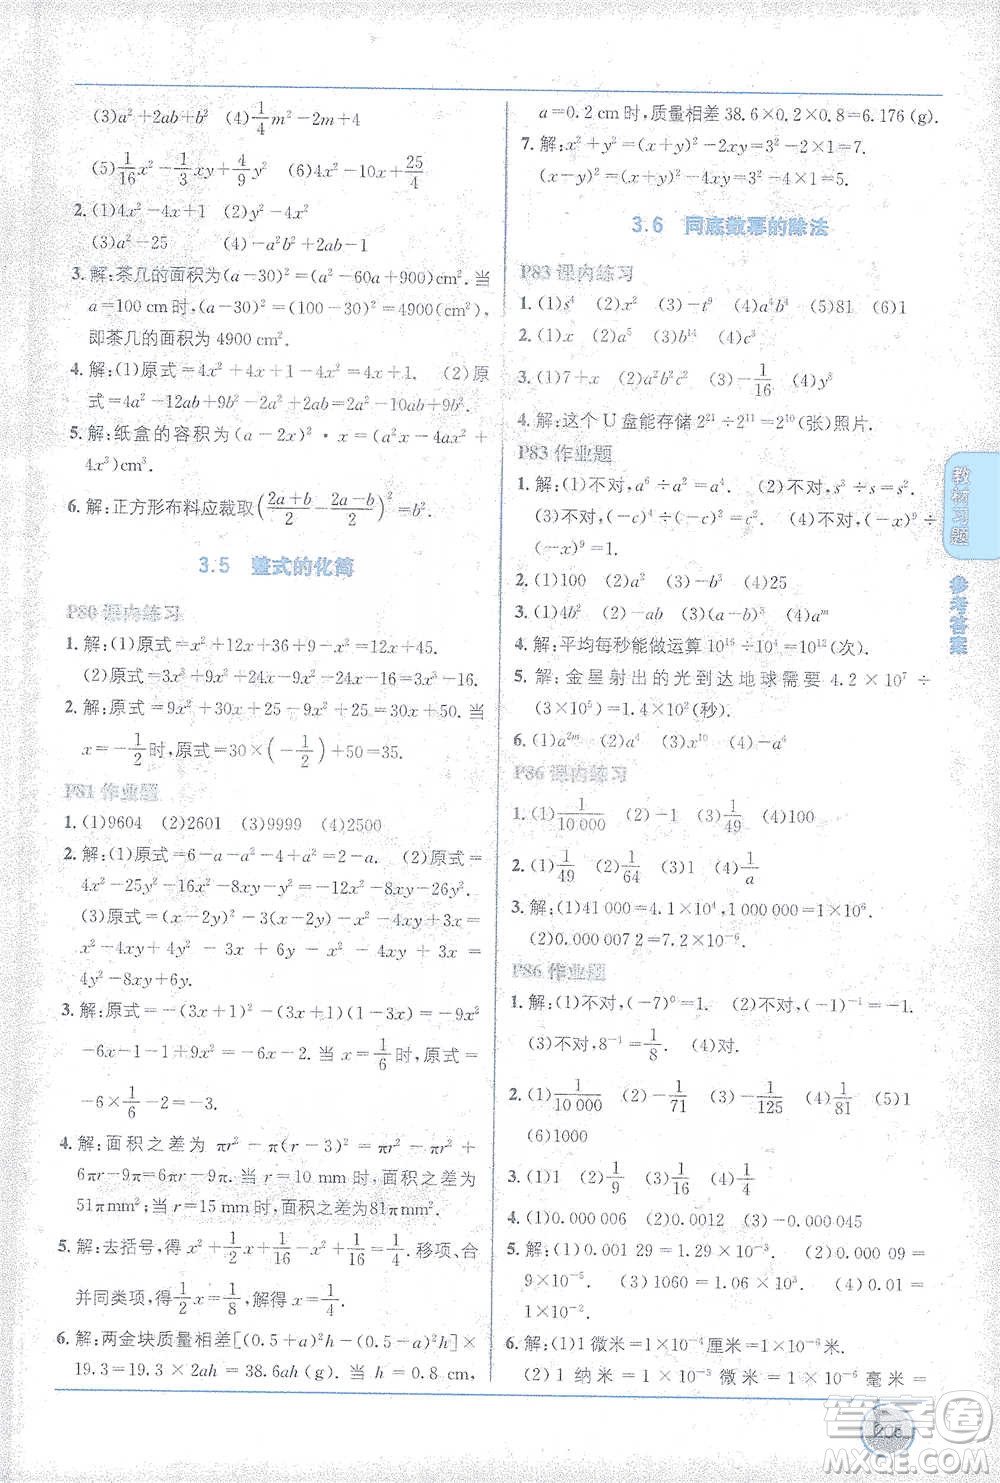 (3)a²+2ab+b²　(4)1/4m²-2m+4
(5)1/16x²-1/3xy+4/9y²　(6)4x²-10x+25/4
2.(1)4x²-4x+1　(2)x²-4x
(3)a²-25　(4)4x²
3.解:茶几的面积(a-30)²=(a²-60a+900)cm². 当
a=100 cm时,(a-30)²=(100-30)²=4900(cm²),
即茶几的面积 4900 cm².
4.解:(1)原式=4x²+4x+1-4x²=4x+1.　(2)原
式=4a²-12ab+9b²+12ab=4a²+9b².
5.解:纸盒的容积为(a-2x)²·x=(a²x-4ax²+
4x³)cm³.
6.解:正方形布料应裁取((2a+b)/2-(2a-b)/2)²=b²(cm²).
3.5　整式的化简
P80 课内练习
1.解:(1)原式=x²+12x+36+9-x²=12x+45.
(2)原式=4x²+12x-16-4x²-9x=3x-16.
2.解:原式=9x²+30x+25-9x²+25=30x+50.当
x=-1/2时,原式=30×(-1/2)+50=35.
P81 作业题
1.(1)9604　(2)2601　(3)9999　(4)2500
2.解:(1)原式=6-a-a²-4+a²=2-a.　(2)原式=
4x²-25y²-16x²-8xy-y²=-12x²-8xy-26y².
(3)原式=(x-2y)²-(x-2y)(x+2y)-4xy+
x²-4xy+4y²-x²+4y²=
4y²-4xy+6y.
3.解:原式=-(3x+1)²-(3x+1)(1-3x)=-9x²
-6x-1-1+9x²=-6x-2.当 x=1/6时,原式=
-6×1/6-2=-3.
4.解:面积之差为 πr²-π(r-3)²=πr²-πr²+
6πr-9π=6πr-9π.当 r=10 mm时,面积之差为
51π mm²;当 r=15 mm时,面积之差为81π mm².
5.解:去括号,得 x²+1/2x+1/16-x²=3/16.移项、合
并同类项,得1/2x=1/8,解得 x=1/4.
6.解:两金块质量相差[(0.5+a)²h-(0.5-a)²h]×
19.3=19.3×2ah=38.6ah(g).当 h=0.8 cm,
a=0.2 cm时,质量相差 38.6×0.2×0.8=6.176(g).
7.解:x²+y²=(x+y)²-2xy=3²-2×1=7.
(x-y)²=(x+y)²-4xy=3²-4×1=5.
3.6　同底数幂的除法
P83 课内练习
1.(1)s⁴　(2)x²　(3)-t⁹　(4)a⁴b⁴　(5)81　(6)1
2.(1)x　(2)a⁵　(3)b¹⁴　(4)-m³
3.(1)7+x　(2)a²b²c²　(3)-1/16　(4)y³
4.解:这个 U 盘能存储 2²¹÷2¹¹=2¹⁰(张)照片.
P83 作业题
1.解:(1)不对,a⁶÷a=a⁵.　(2)不对,s³÷s=s².
(3)不对,(-x)⁹÷
(-x)⁹=1.
2.(1)100　(2)x²　(3)-y　(4)25
3.(1)4b²　(2)-ab　(3)　(4)aᵐ
4.解:平均每秒能做运算 10¹⁶÷10⁴=10¹²(次).
5.解:金星射出的光到达地球需要 4.2×10⁷÷
(3×10⁵)=1.4×10²(秒).
6.(1)a²ᵐ　(2)a⁴　(3)x¹⁰　(4)-a⁶
P86 课内练习
1.(1)1/10 000　(2)-1　(3)1/49　(4)100
2.(1)1/49　(2)1/64　(3)4　(4)1/a
3.解:(1)41 000=4.1×10⁴,1000000=1×10⁶.
(2)0.000 007 2=7.2×10⁻⁶.
P86 作业题
1.解:(1)不对,(-7)⁰=1.　(2)不对,(-1)⁻¹=-1.
(3)不对,8⁻¹=1/8.　(4)对.
2.(1)1/10 000　(2)-1/71　(3)-1/125　(4)1/81　(5)1
(6)1000
3.(1)1　(2)1/9　(3)1/16　(4)1/4
4.(1)0.000 006　(2)0.0012　(3)-0.000 045
5.解:(1)0.001 29=1.29×10⁻³.　(2)0.000 09=
9×10⁻⁵.　(3)1060=1.06×10³.　(4)0.01=10⁻².
6.解:(1)1 微米=1×10⁻⁴厘米=1×10⁻⁶米.
(2)1 纳米=1×10⁻³ 微米=1×10⁻⁶ 毫米=
教材习题
参考答案
答案圈
MXQE.COM